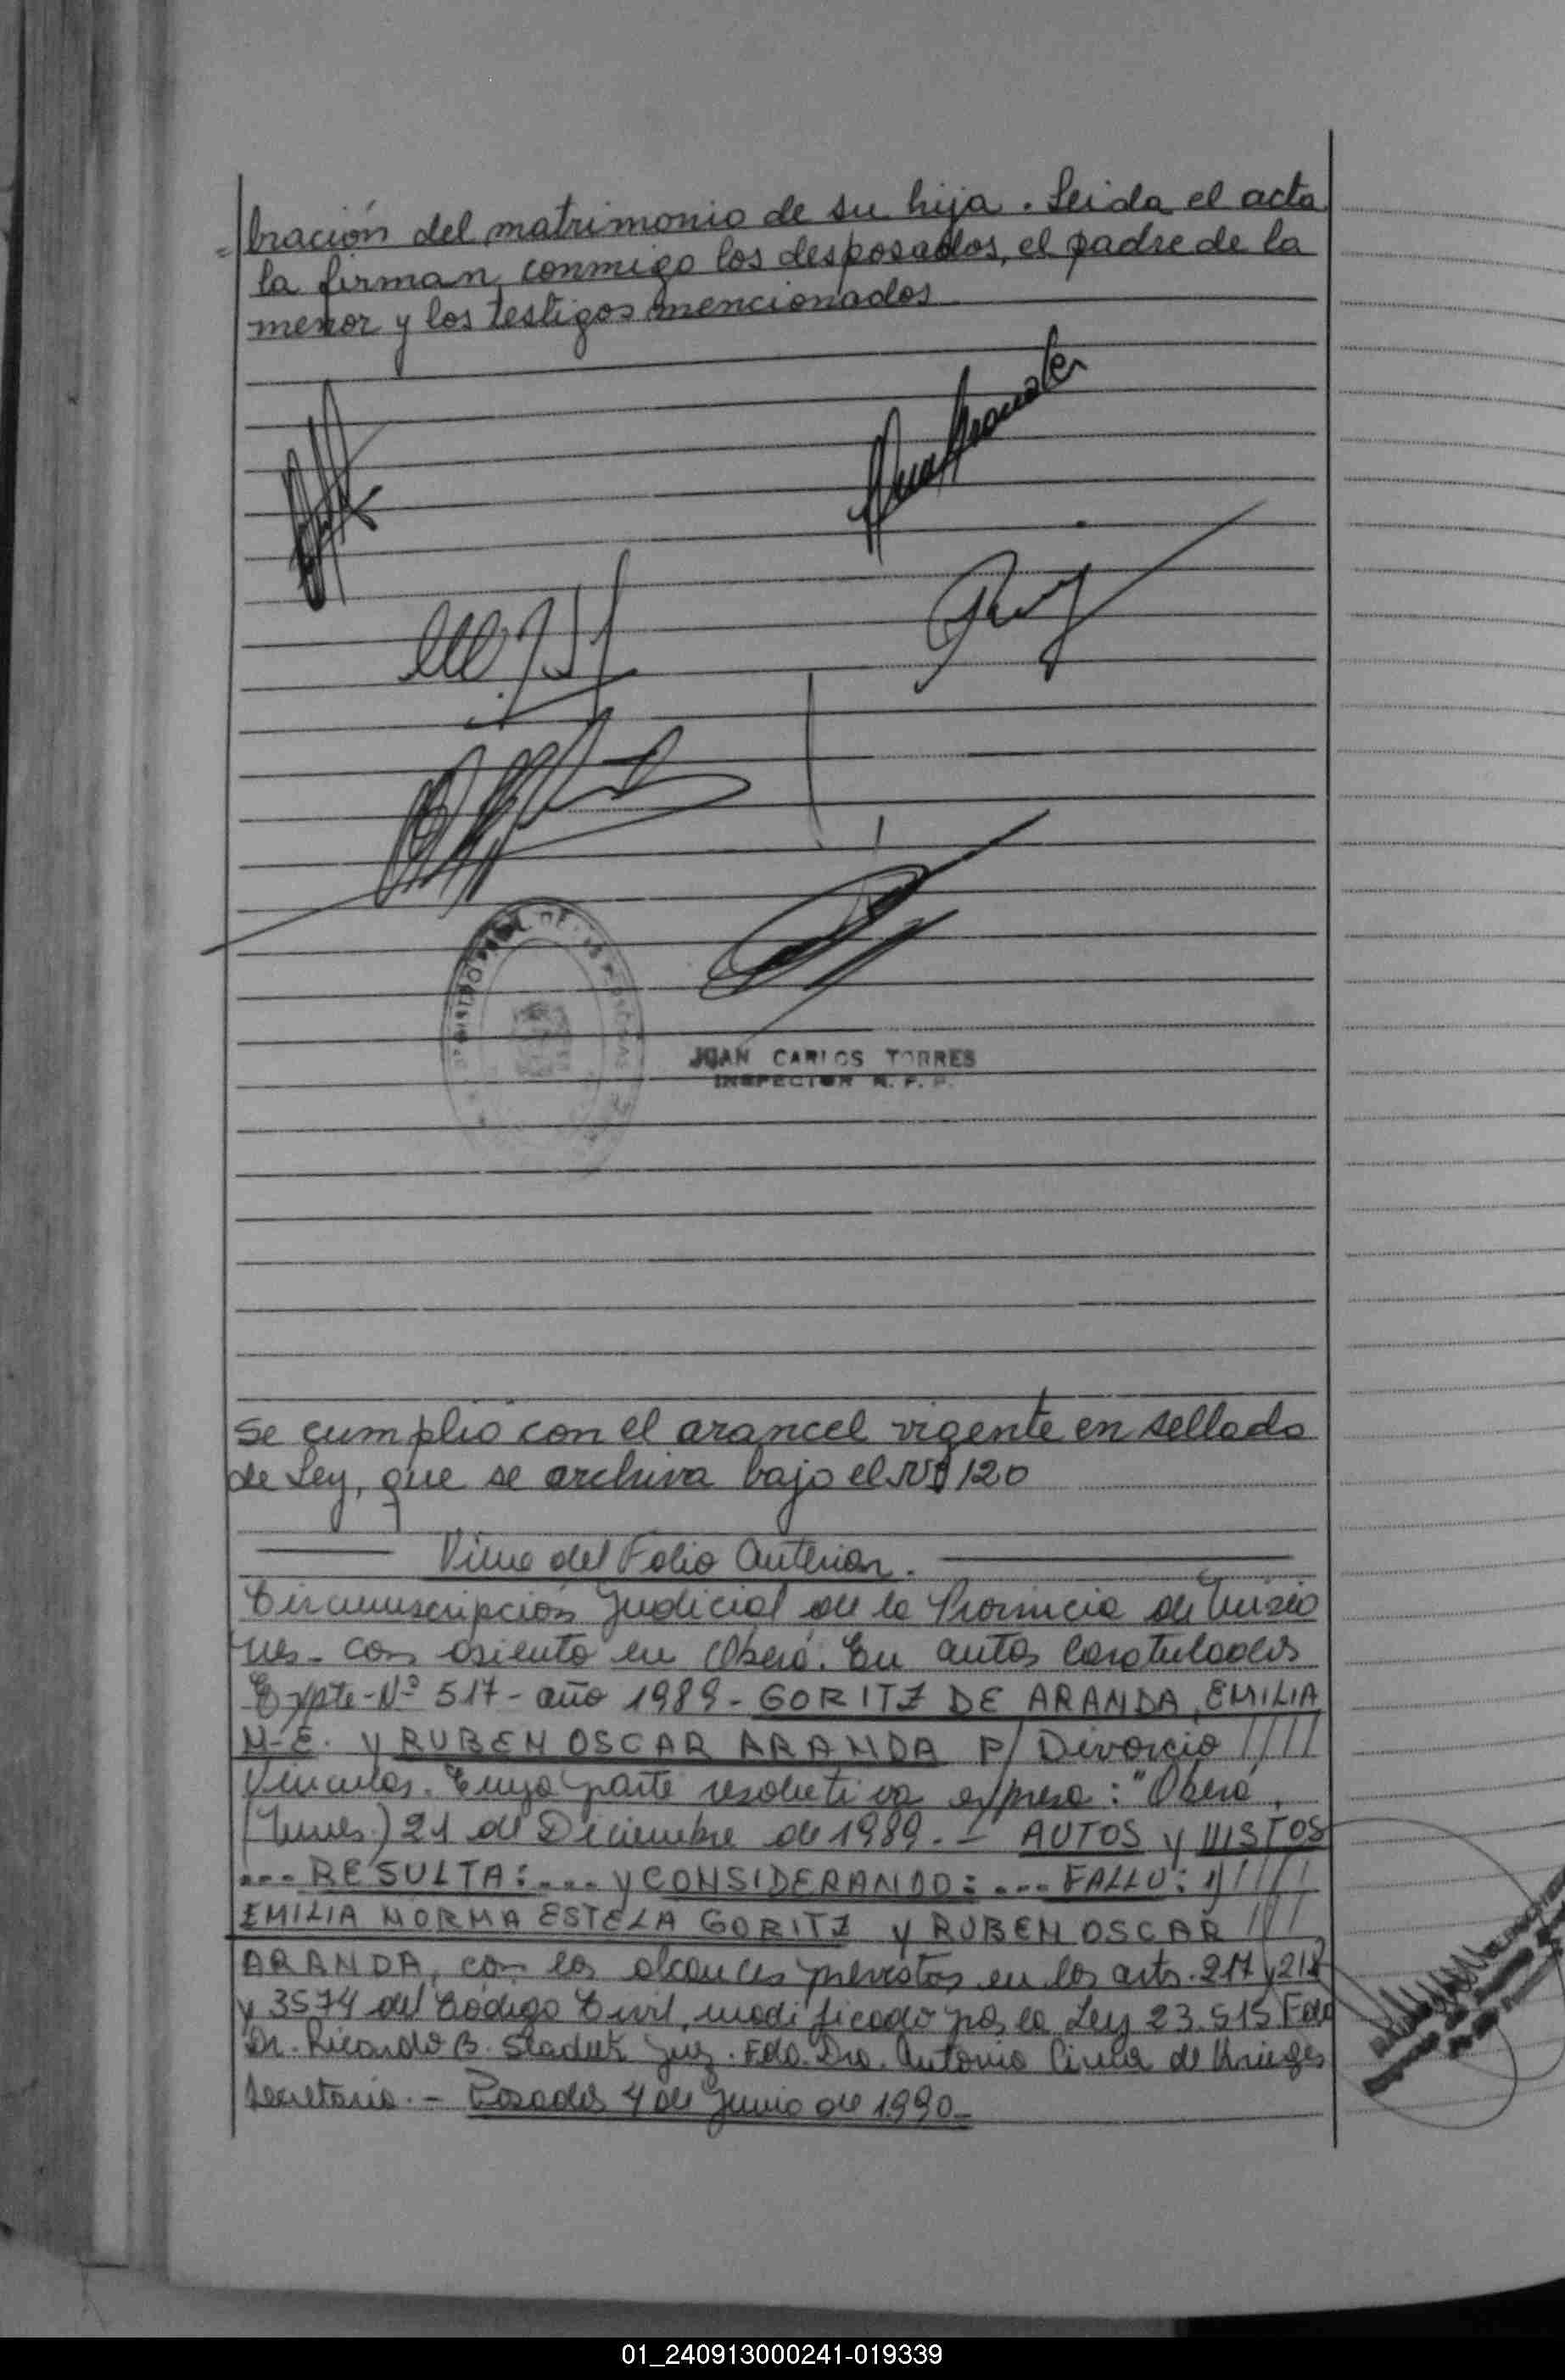 =bración del matrimonio de su hija. Leida el acta
la firman conmigo los desposados, el padre de la
menor y los testigos mencionados
JUAN CARLOS TORRES
INSPECTOR R. P. P.
se cumplio con el arancel vigente en sellado
de Ley, que se archiva bajo el Nº 120
Viene del Folio Anterior.
Circunscripción Judicial de la Provincia de Misio
nes- con asiento en Oberá. En autos Caratulados
Expte-Nº 517- año 1989- GORITZ DE ARANDA, EMILIA
N-E. y RUBEN OSCAR ARANDA P/ Divorcio /////
Vincular. Cuya parte resolutiva expresa: "Oberá,
(Mnes.) 21 de Diciembre de 1989.- AUTOS y VISTOS
... RESULTA: ... y CONSIDERANDO: ... FALLO: 1) /////
EMILIA NORMA ESTELA GORITZ y RUBEN OSCAR ///
ARANDA, con los alcances previstos en los arts. 217 y 218
y 3574 del Código Civil, modificado por la Ley 23.515 Fdo
Dr. Ricardo B. Juez. Fdo. Dra. Antonia de
Secretaria.- Posadas 4 de Junio de 1990-
01_240913000241-019339